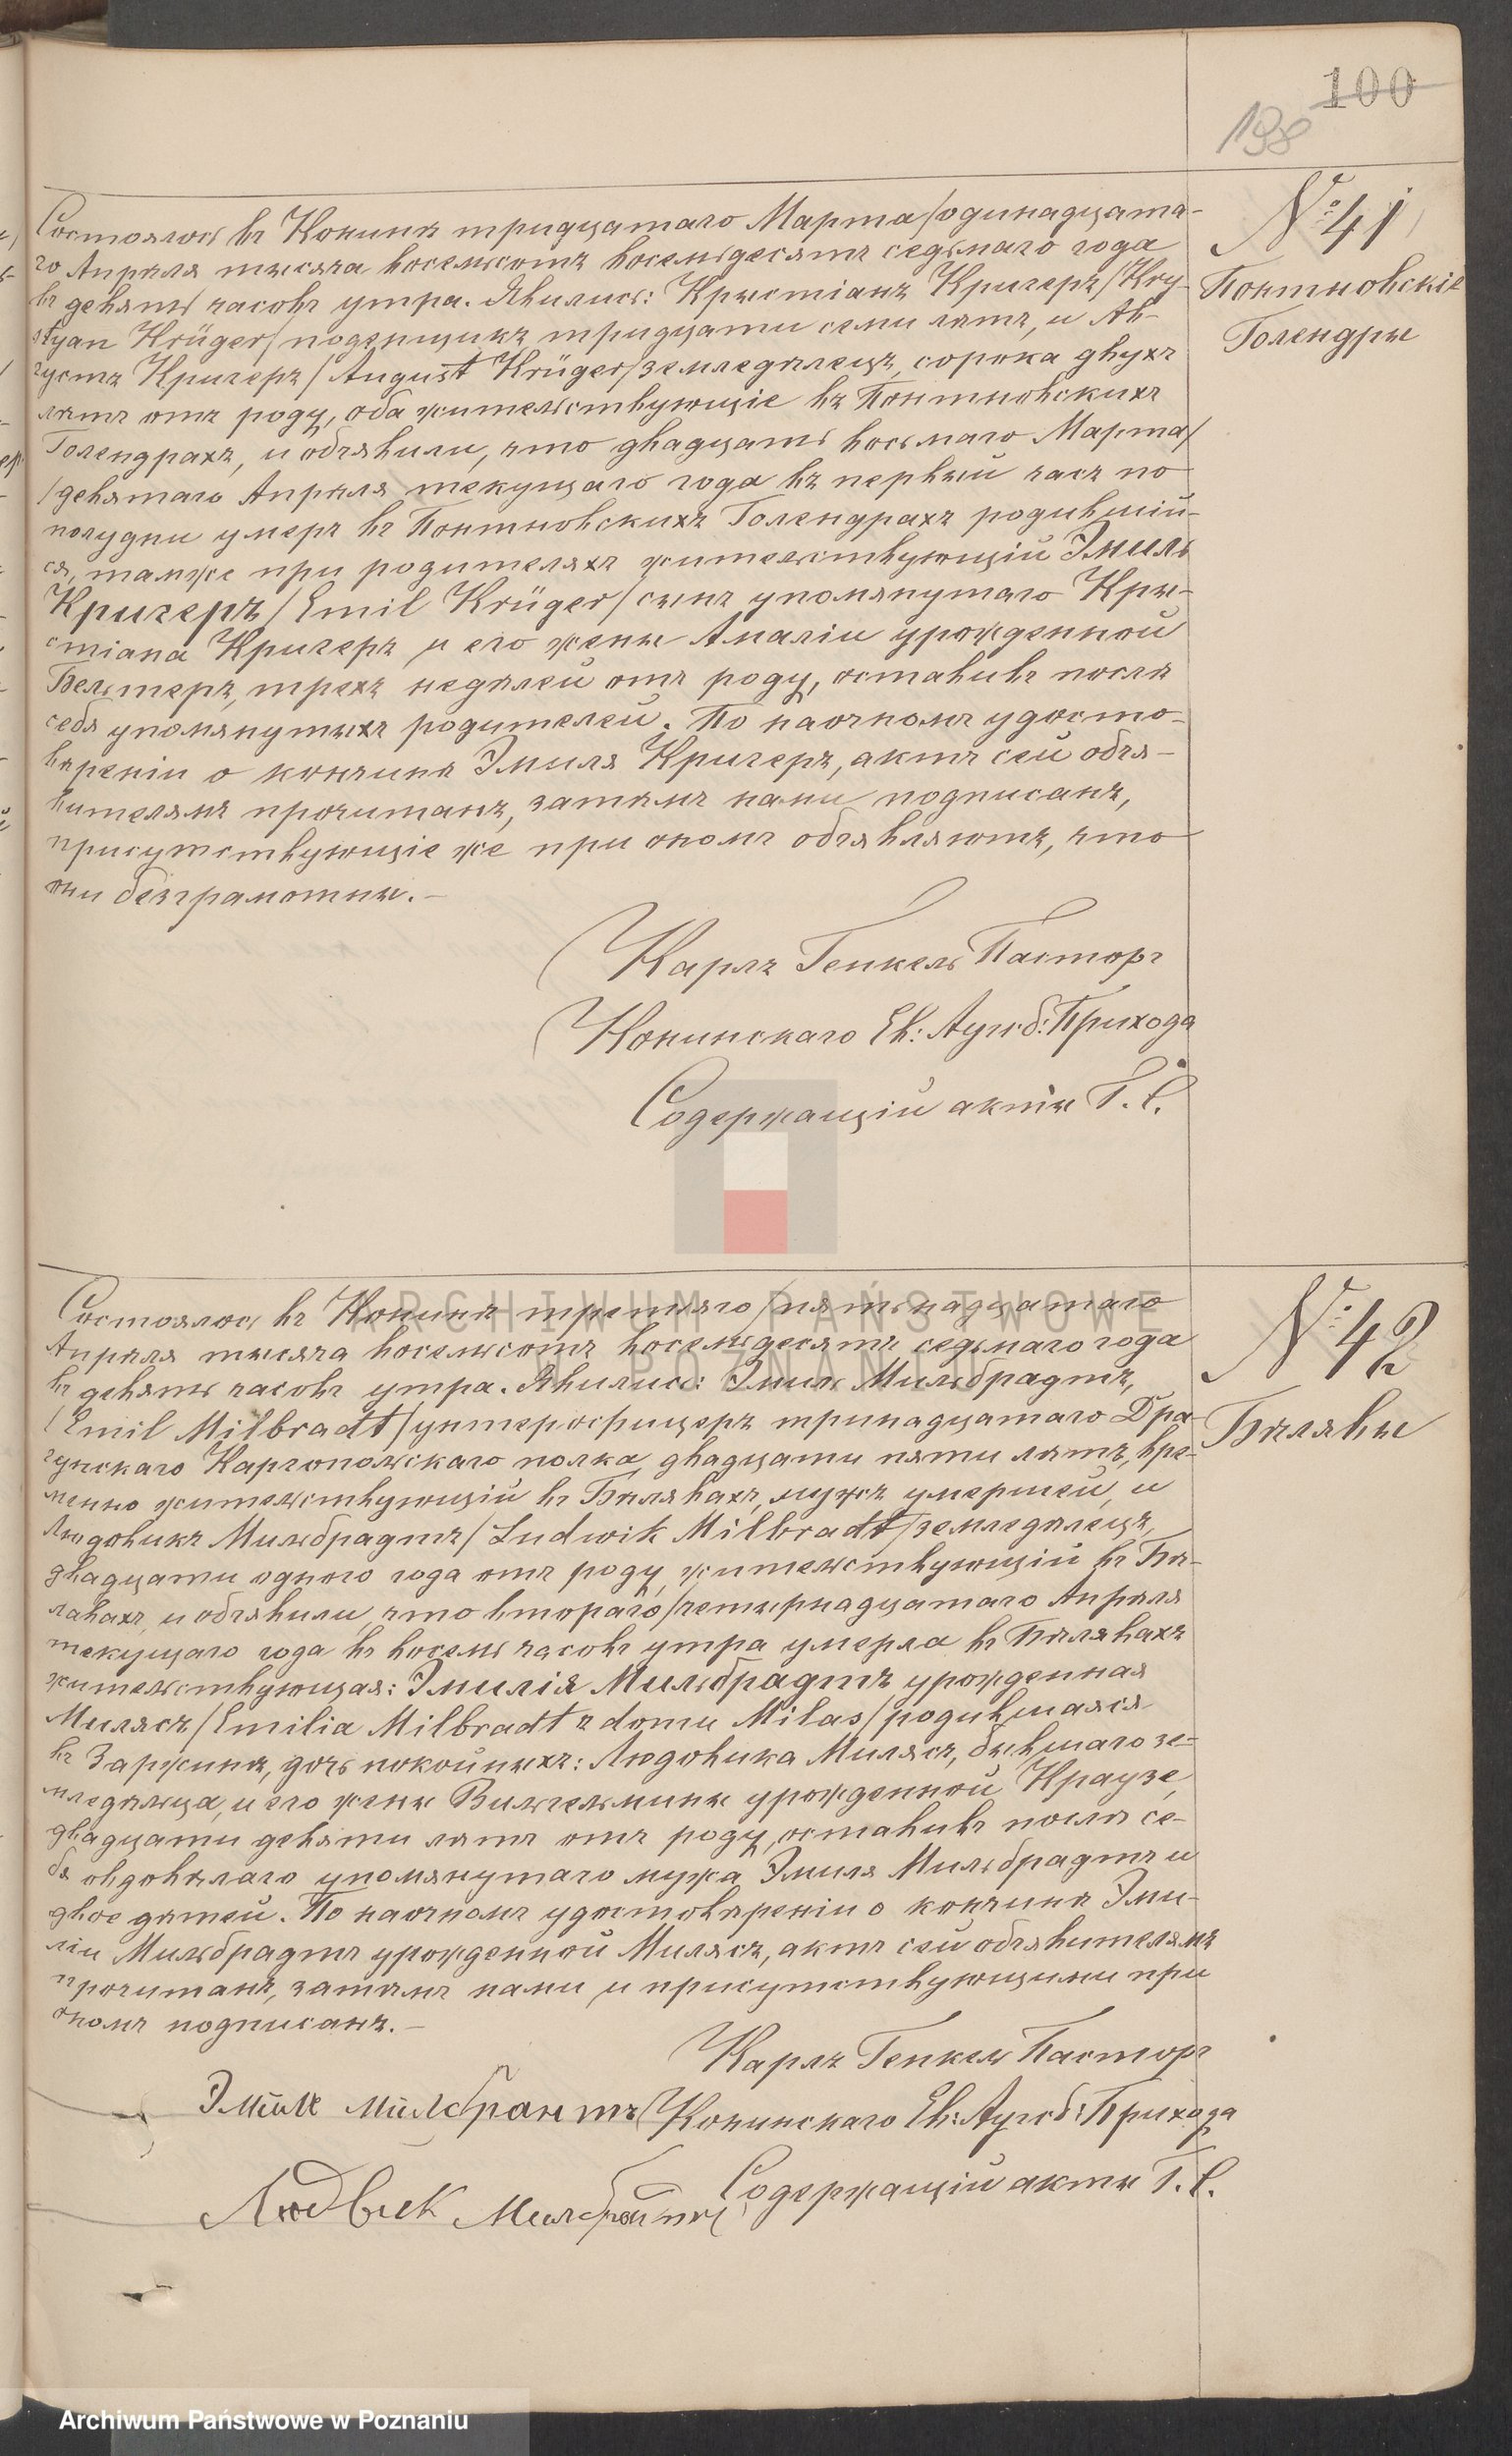 100
198
№ 41
Понтновскіе
Голендры
Состоялось въ Конинѣ тридцатаго Марта /одинадцата-
го Апрѣля тысяча восемьсотъ восемьдесятъ седьмаго года
въ девять часовъ утра. Явились: Крыстіанъ Кригеръ /Kry-
styan Krüger/ поденщикъ, тридцати семи лѣтъ, и Ав-
густъ Кригеръ /August Krüger/ земледѣлецъ, сорока двухъ
лѣтъ отъ роду, оба жительствующіе въ Понтновскихъ
Голендрахъ, и объявили, что двадцать восьмаго Марта/
/девятаго Апрѣля текущаго года въ первый часъ по
полудни умеръ въ Понтновскихъ Голендрахъ родившій-
ся, тамже при родителяхъ жительствующій Эмиль
Кригеръ /Emil Krüger/ сынъ упомянутаго Кры-
стіана Кригеръ и его жены Амаліи урожденной
Бельтеръ, трехъ недѣлей отъ роду, оставивъ послѣ
себя упомянутыхъ родителей. По наочномъ удосто-
вѣреніи о кончинѣ Эмиля Кригеръ, актъ сей объя-
вителямъ прочитанъ, затѣмъ нами подписанъ,
присутствующіе же при ономъ объявляютъ, что
они безграмотны.-
Карлъ Генкель Пасторъ
Конинскаго Ев: Аугсб: Прихода
Содержащій акты Г. С.
№ 42
Бѣлявы
Состоялось въ Конинѣ третьяго /пятьнадцатаго
Апрѣля тысяча восемьсотъ восемьдесятъ седьмаго года
въ девять часовъ утра. Явились: Эмиль Мильбрадтъ,
/Emil Milbradt/ унтерофицеръ тринадцатаго Дра-
гунскаго Каргопольскаго полка, двадцати пяти лѣтъ, вре-
менно жительствующій въ Бѣлявахъ, мужъ умершей, и
Людовикъ Мильбрадтъ /Ludwik Milbradt/ земледѣлецъ,
двадцати одного года отъ роду, жительствующій въ Бѣ-
лавахъ, и объявили, что втораго /четырнадцатаго Апрѣля
текущаго года въ восемь часовъ утра умерла въ Бѣлявахъ
жительствующая: Эмилія Мильбрадтъ урожденная
Милясъ /Emilia Milbradt z domu Milas/ родившаяся
въ Заржинѣ, дочь покойныхъ: Людовика Милясъ, бывшаго зе-
мледѣльца, и его жены Вильгельмины урожденной Краузе,
двадцати девяти лѣтъ отъ роду, оставивъ послѣ се-
бя овдовѣлаго упомянутаго мужа Эмиля Мильбрадтъ и
двое дѣтей. По наочномъ удостовѣреніи о кончинѣ Эми-
ліи Мильбрадтъ урожденной Милясъ, актъ сей объявителямъ
прочитанъ, затѣмъ нами и присутствующими при
ономъ подписанъ.-
Карлъ Генкель Пасторъ
Эмиле Милбрантъ
Конинскаго Ев: Аугсб: Прихода
Содержащій акты Г. С.
Людвик
ARCHIWUM PAŃSTWOWE
W POZNANIU
Archiwum Państwowe w Poznaniu